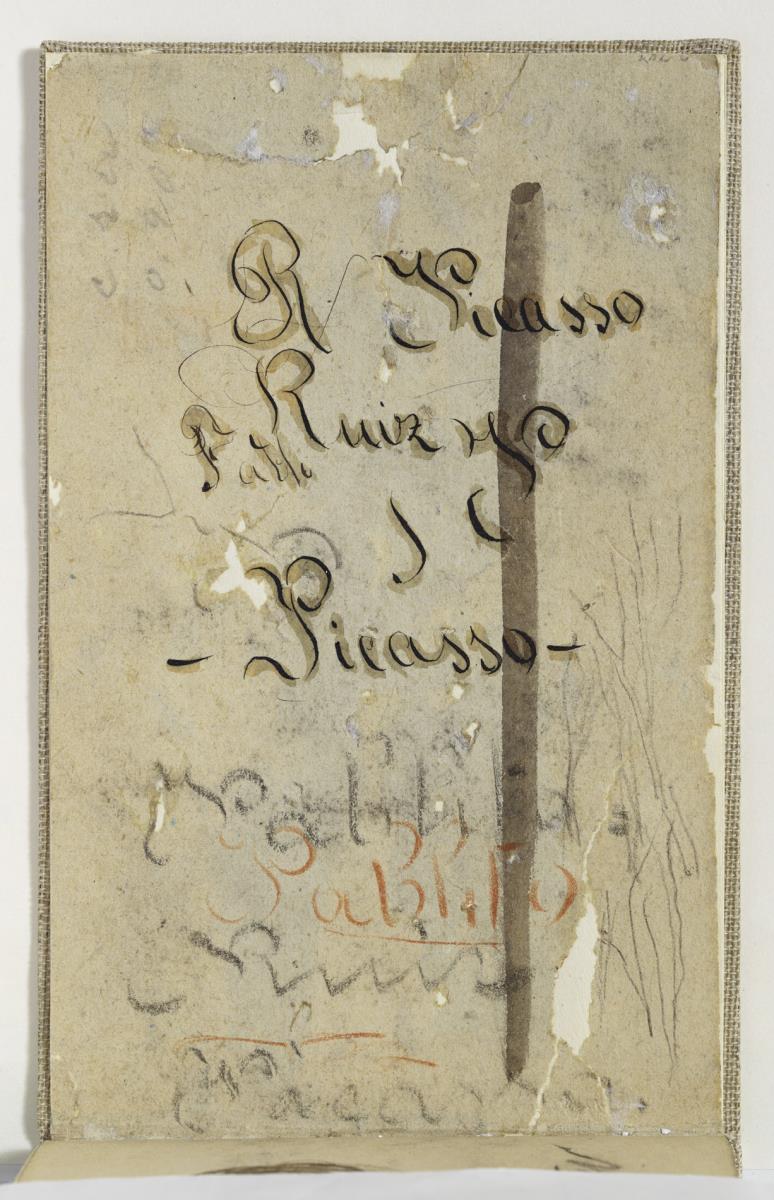 R Picasso
Ruiz P
Pablo
- Picasso -
Pablito
Pablito
Ruiz
Picasso